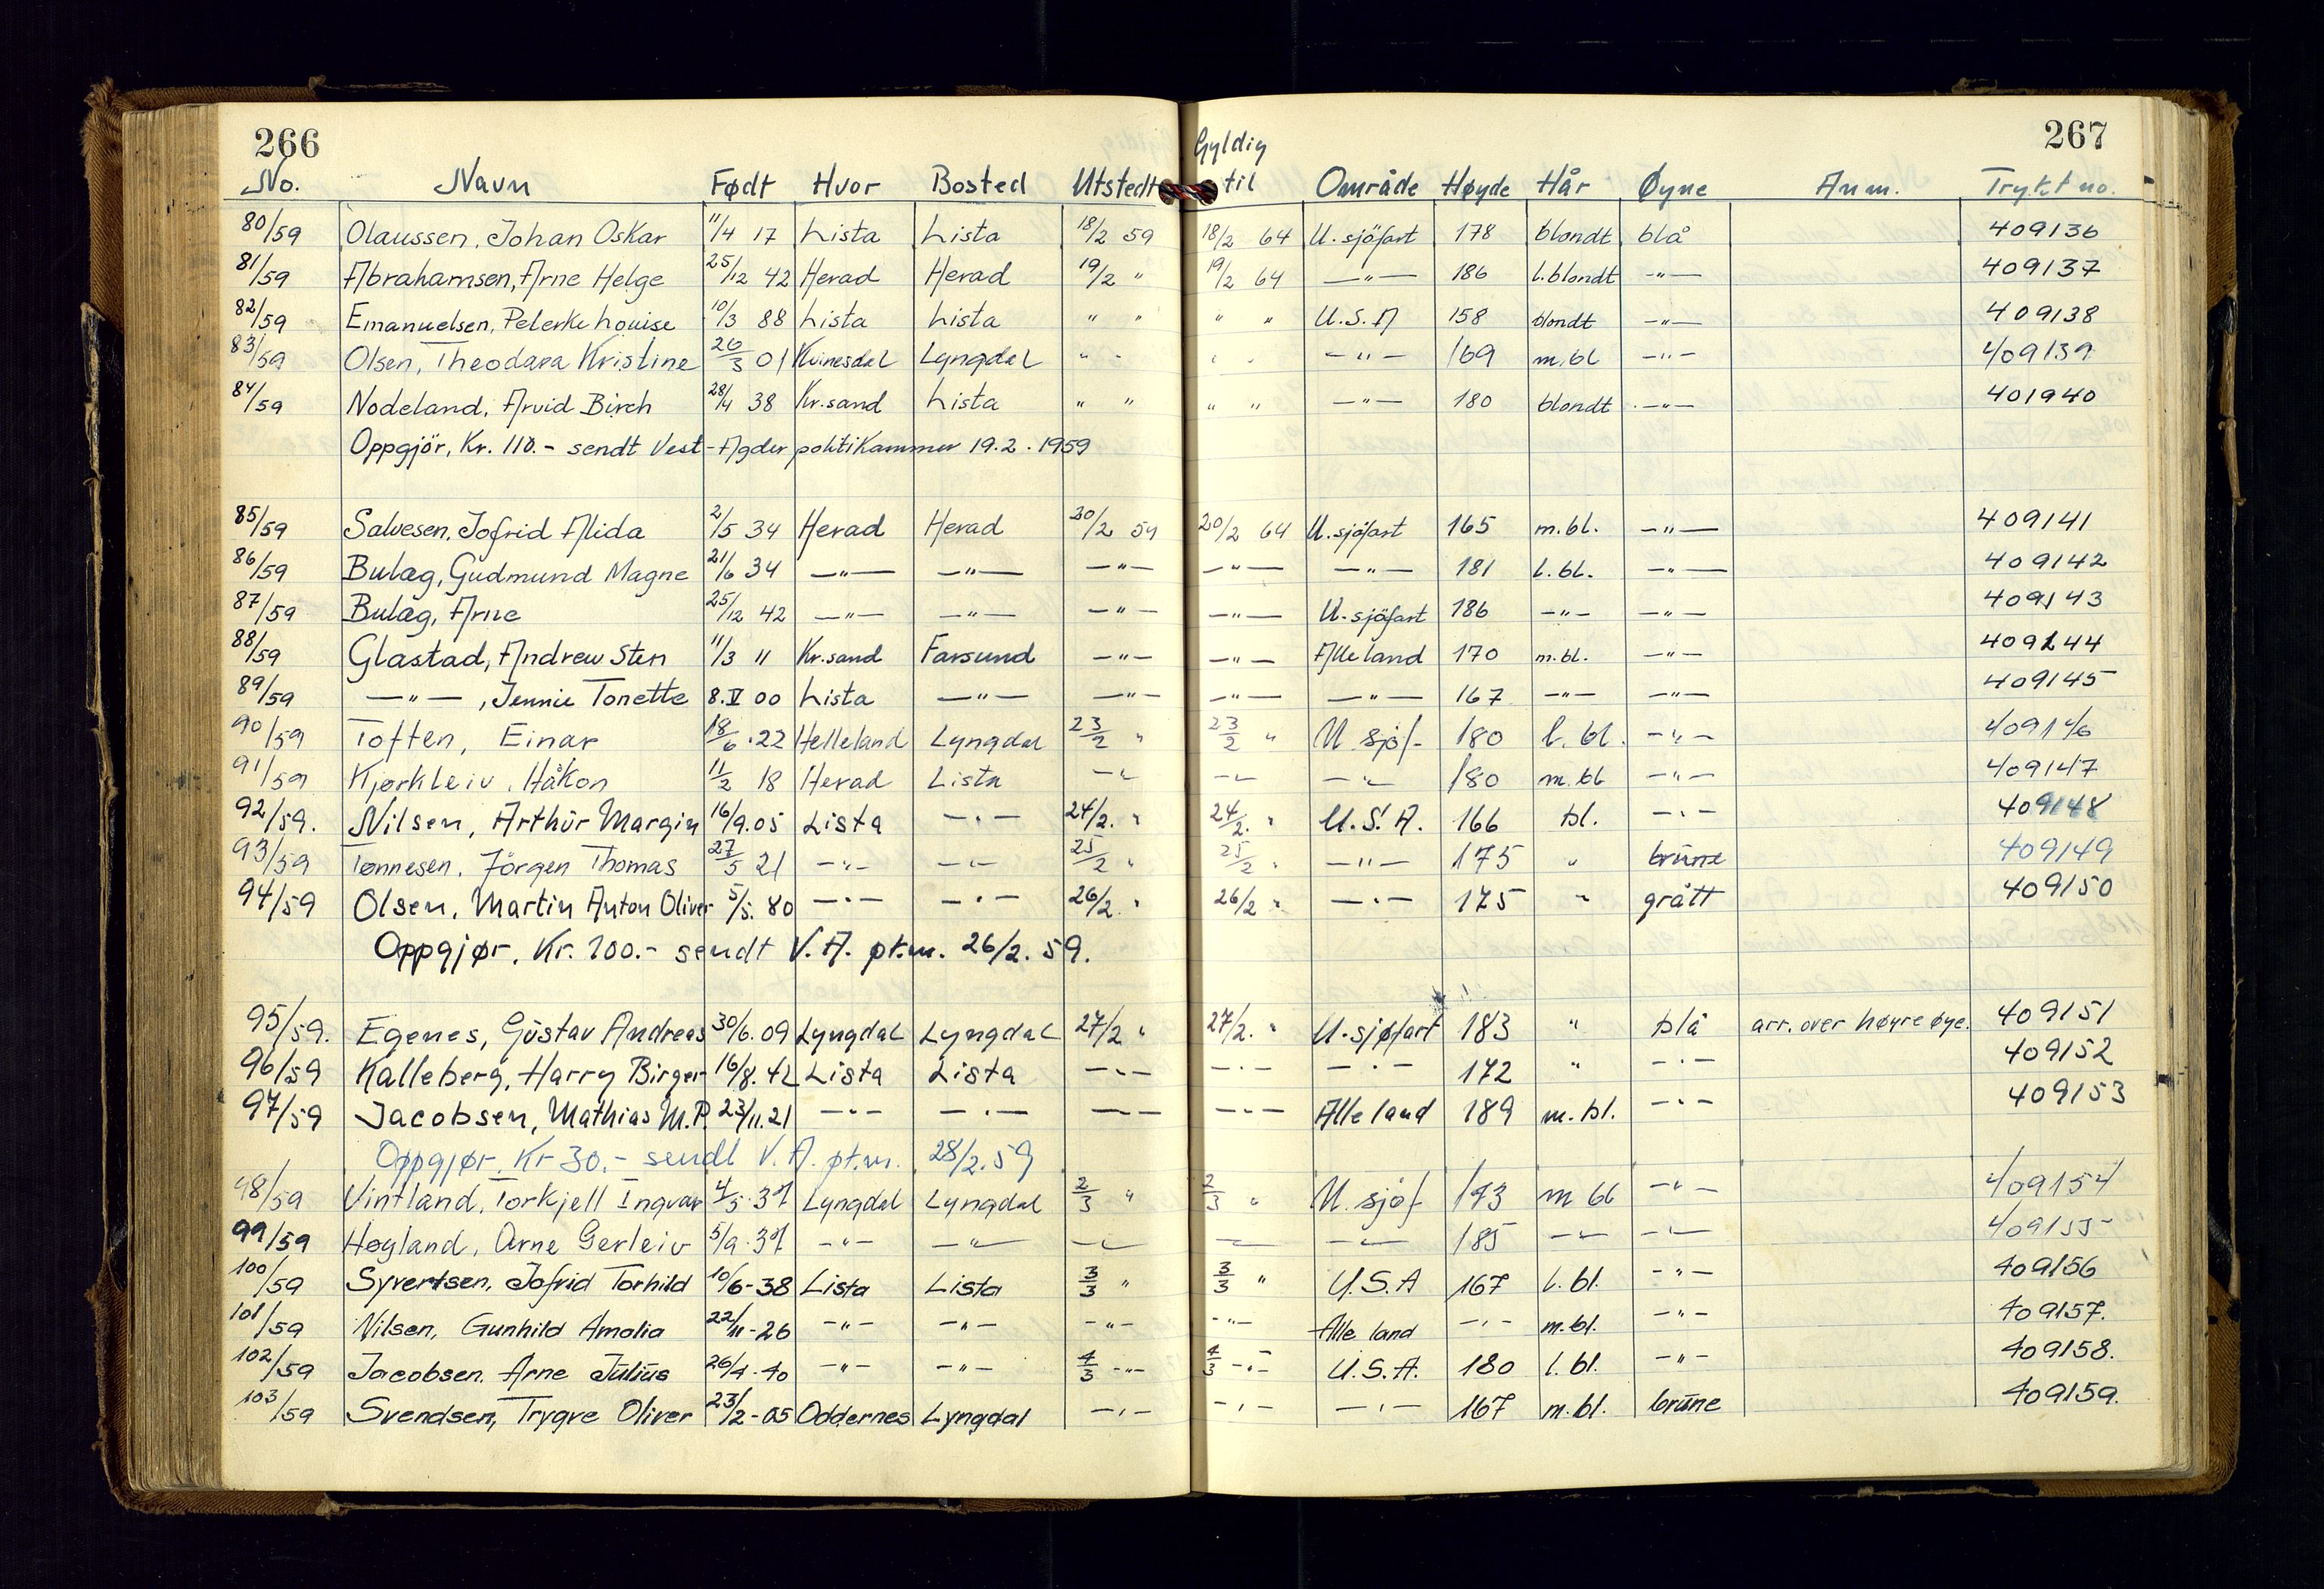 266
267
No. Navn Født Hvor Bosted Utstedt Gyldig til Område Høyde Hår Øyne Anm. Trykt no.
80/59 Olaussen, Johan Oskar 11/4 17 Lista Lista 18/2 59 18/2 64 U. sjöfart 178 blondt blå 409136
81/59 Abrahamsen, Arne Helge 25/12 42 Herad Herad 19/2 " 19/2 64 —"— 186 l.blondt —"— 409137
82/59 Emanuelsen, Peterke Louise 10/3 88 Lista Lista " " " " U.S.A 158 blondt —"— 409138
83/59 Olsen, Theodara Kristine 26/3 01 Kvinesdal Lyngdal " " " " —"— 169 m.bl —"— 409139
84/59 Nodeland, Arvid Birch 28/4 38 Kr.sand Lista " " " " —"— 180 blondt —"— 401940
Oppgjör, Kr. 110.- sendt Vest-Agder politikammer 19.2.1959
85/59 Salvesen, Jofrid Alida 2/5 34 Herad Herad 20/2 59 20/2 64 U.sjöfart 165 m.bl. —"— 409141
86/59 Bulæg, Gudmund Magne 21/6 34 —"— —"— —"— —"— —"— 181 l.bl. —"— 409142
87/59 Bulæg, Arne 25/12 42 —"— —"— —"— —"— U.sjöfart 186 —"— —"— 409143
88/59 Glastad, Andrew Sten 11/3 11 Kr.sand Farsund —"— —"— Alle land 170 m.bl. —"— 409144
89/59 —"—, Jennie Tonette 8.V 00 Lista —"— —"— —"— —"— 167 —"— —"— 409145
90/59 Toften, Einar 18/6.22 Helleland Lyngdal 23/2 " 23/2 " U sjöf- 180 l.bl. —"— 409146
91/59 Kjørkleiv, Håkon 11/2 18 Herad Lista —"— —"— —"— 180 m.bl —"— 409147
92/59. Nilsen, Arthur Margin 16/9.05 Lista —"— 24/2. " 24/2. " U.S.A. 166 bl. —"— 409148
93/59 Tønnesen, Jörgen Thomas 27/5 21 —"— —"— 25/2 " 25/2 " —"— 175 " brune 409149
94/59 Olsen, Martin Anton Oliver 5/5. 80 —"— —"— 26/2. " 26/2 " —"— 175 " grått 409150
Oppgjør, Kr. 100.- sendt V.A. pt.m. 26/2.59.
95/59. Egenes, Gustav Andreas 30/6.09 Lyngdal Lyngdal 27/2 " 27/2. " U.sjøfart 183 " blå arr. over høyre øye. 409151
96/59 Kalleberg, Harry Birger 16/8.42 Lista Lista —"— —"— —"— 172 " —"— 409152
97/59 Jacobsen, Mathias M.P. 23/11.21 —"— —"— —"— —"— Alle land 189 m.bl. —"— 409153
Oppgjør, Kr 30.- sendt V.A. pt.m. 28/2.59
98/59 Vintland, Torkjell Ingvar 4/5.37 Lyngdal Lyngdal 2/3 " 2/3 " U.sjöf 173 m bl —"— 409154
99/59 Høyland, Arne Gerleiv 5/9.37 —"— —"— —"— —"— —"— 185 —"— —"— 409155
100/59 Syvertsen, Jofrid Torhild 10/6-38 Lista Lista 3/3 " 3/3 " U.S.A 167 l.bl. —"— 409156
101/59 Nilsen, Gunhild Amalia 22/11-26 —"— —"— —"— —"— Alle land —"— m.bl. —"— 409157.
102/59 Jacobsen. Arne Julius 26/4.40 —"— —"— 4/3 —"— 4/3 —"— U.S.A. 180 l.bl. —"— 409158.
103/59 Svendsen, Trygve Oliver 23/2-05 Oddernes Lyngdal —"— —"— —"— 167 m.bl. brune 409159.